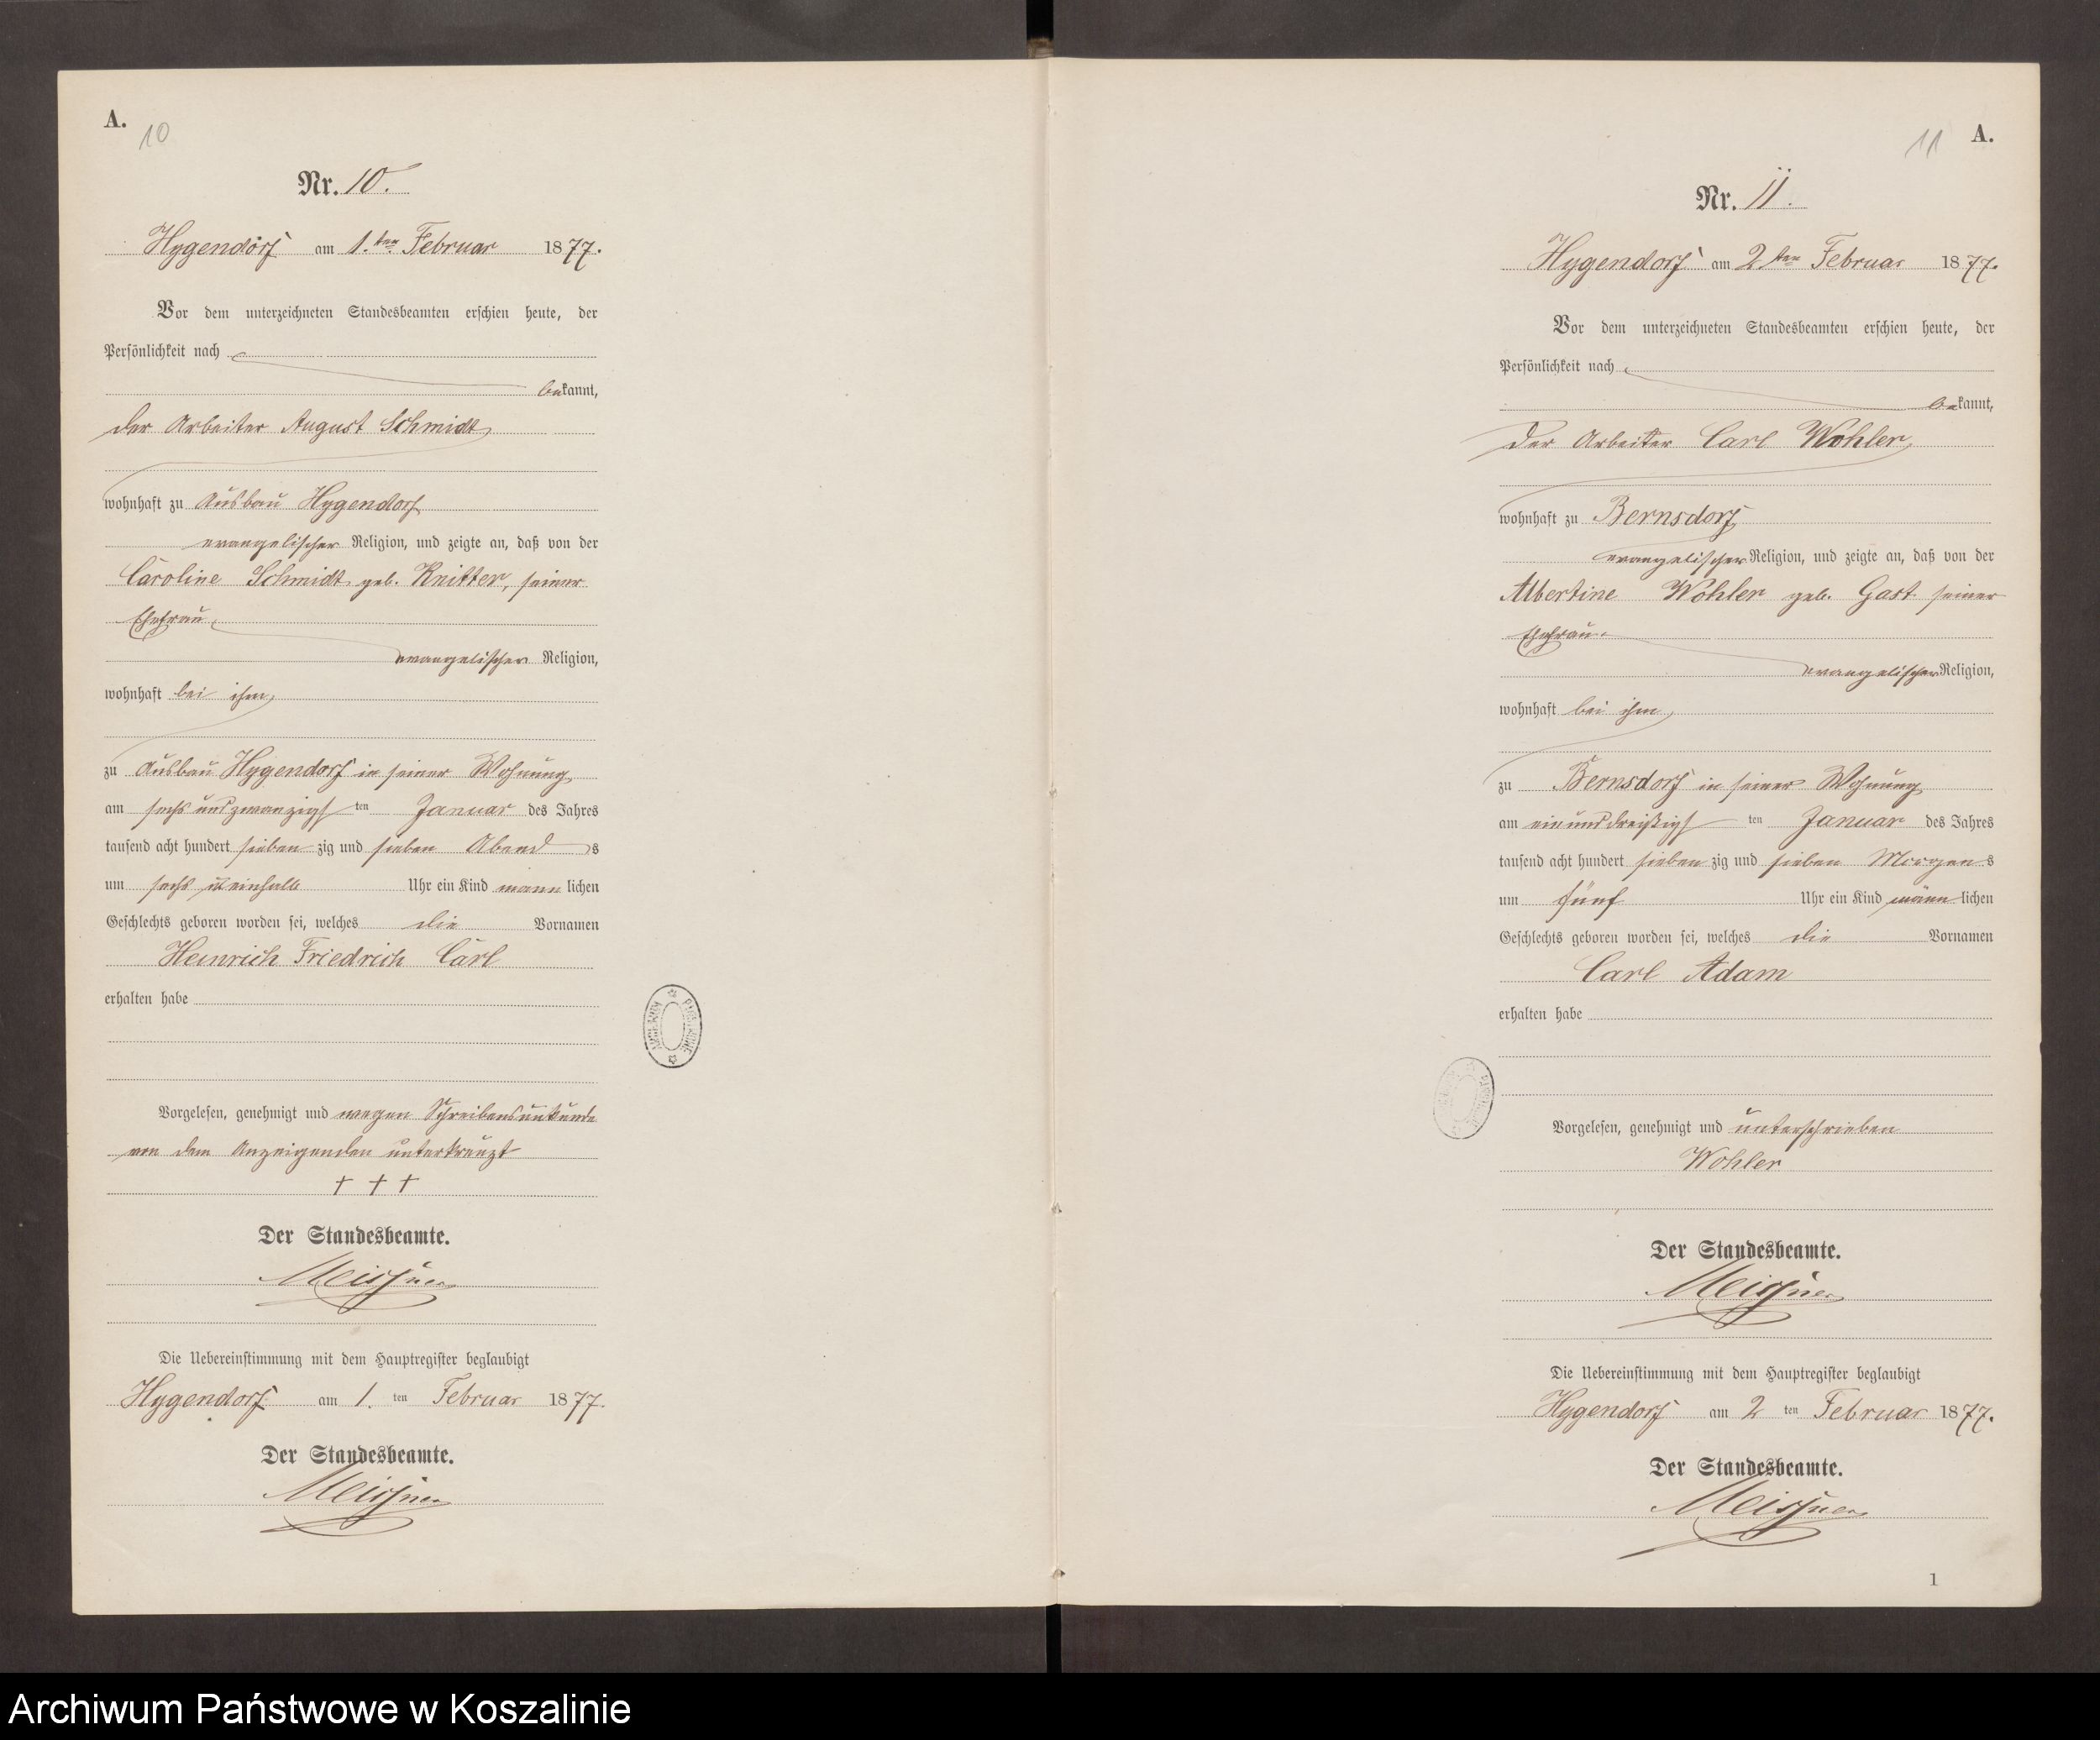 A.
10
Nr. 10.
Hygendorf am 1. ten Februar 1877.
Vor dem unterzeichneten Standesbeamten erschien heute, der
Persönlichkeit nach
bekannt,
der Arbeiter August Schmidt
wohnhaft zu Ausbau Hygendorf
evangelischer Religion, und zeigte an, daß von der
Caroline Schmidt geb. Knitter, seiner
Ehefrau
evangelischer Religion,
wohnhaft bei ihm
zu Ausbau Hygendorf in seiner Wohnung
am sechs und zwanzigsten Januar des Jahres
tausend acht hundert siebenzig und sieben Abends
um sechs einhalb Uhr ein Kind männlichen
Geschlechts geboren worden sei, welches die Vornamen
Heinrich Friedrich Carl
erhalten habe
Vorgelesen, genehmigt und wegen Schreibensunkunde
von dem Anzeigenden unterkreuzt
† † †
Der Standesbeamte.
Meissner
Die Uebereinstimmung mit dem Hauptregister beglaubigt
Hygendorf am 1. ten Februar 1877.
Der Standesbeamte.
Meissner
ARCHIWUM PAŃSTWOWE
11
A.
Nr. 11.
Hygendorf am 2 ten Februar 1877.
Vor dem unterzeichneten Standesbeamten erschien heute, der
Persönlichkeit nach
bekannt,
der Arbeiter Carl Wohler,
wohnhaft zu Bernsdorf
evangelischer Religion, und zeigte an, daß von der
Albertine Wohler geb. Gast seiner
Ehefrau
evangelischer Religion,
wohnhaft bei ihm
zu Bernsdorf in seiner Wohnung
am ein und dreißigsten Januar des Jahres
tausend acht hundert siebenzig und sieben Morgens
um fünf Uhr ein Kind männlichen
Geschlechts geboren worden sei, welches die Vornamen
Carl Adam
erhalten habe
Vorgelesen, genehmigt und unterschrieben
Wohler
Der Standesbeamte.
Meissner
Die Uebereinstimmung mit dem Hauptregister beglaubigt
Hygendorf am 2 ten Februar 1877.
Der Standesbeamte.
Meissner
1
Archiwum Państwowe w Koszalinie